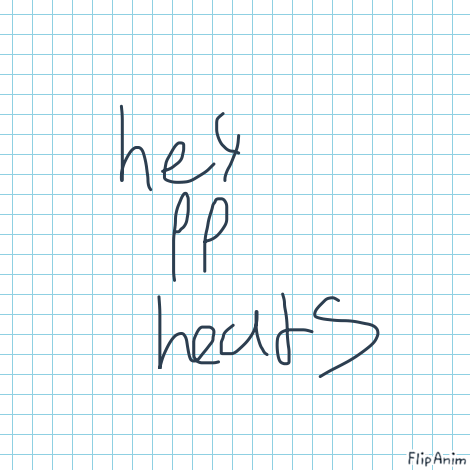 hey
pp
heats
FlipAnim